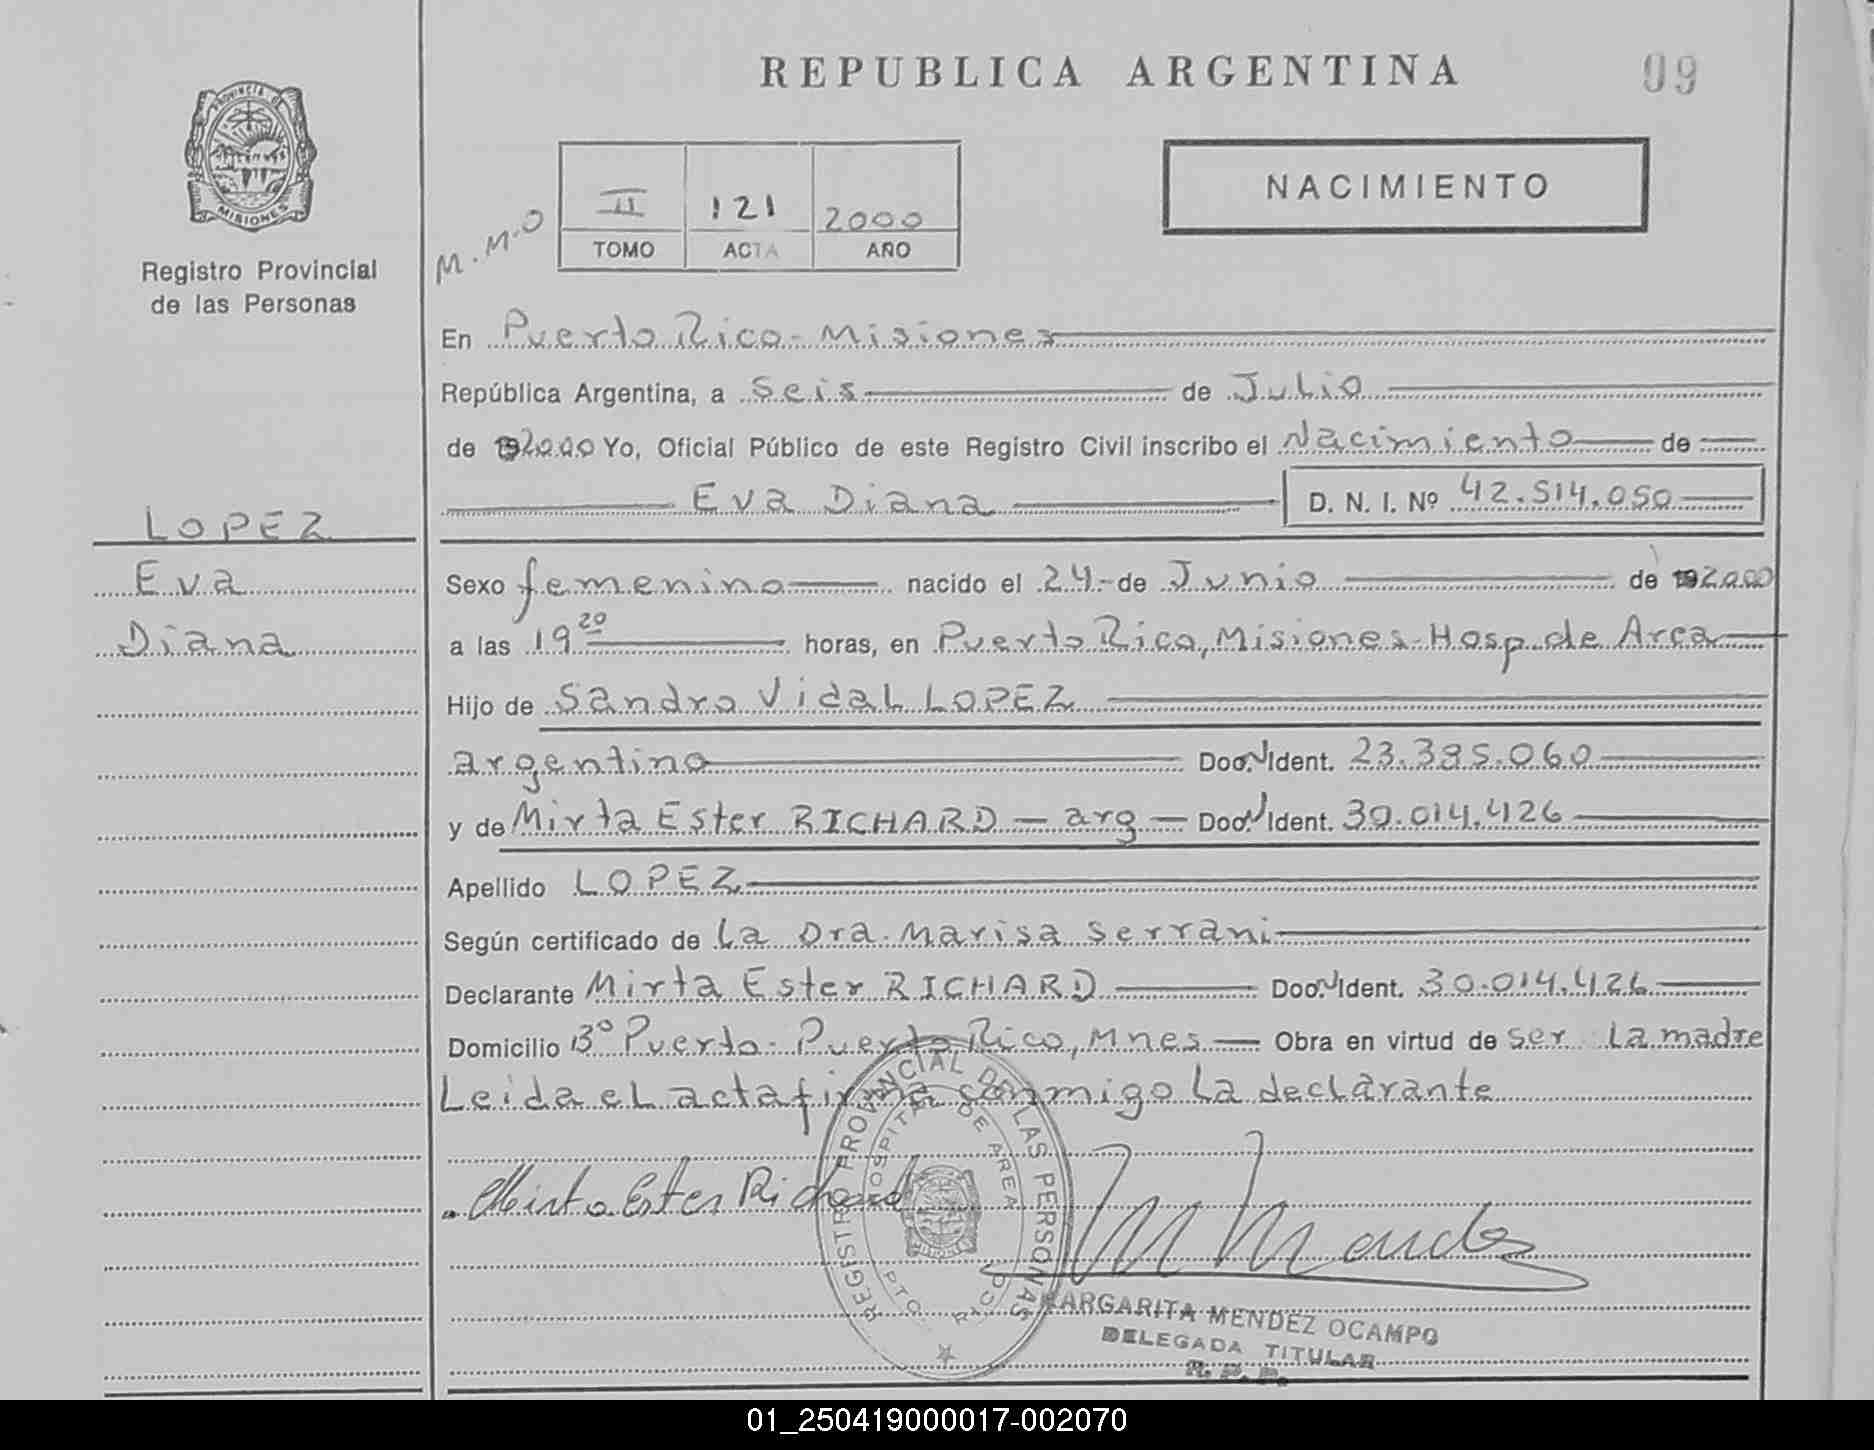 REPUBLICA ARGENTINA
09
PROVINCIA DE
MISIONES
Registro Provincial
de las Personas
M.M.O
II 121 2000
TOMO ACTA AÑO
NACIMIENTO
En Puerto Rico - Misiones
República Argentina, a Seis de Julio
de 192000 Yo, Oficial Público de este Registro Civil inscribo el Nacimiento de
Eva Diana D. N. I. Nº 42.514.050
LOPEZ
Eva
Diana
Sexo femenino nacido el 24 - de Junio de 192000
a las 19 20 horas, en Puerto Rico, Misiones - Hosp de Area
Hijo de Sandro Vidal LOPEZ
argentino Doc. N Ident. 23.385.060
y de Mirta Ester RICHARD - arg - Doc. N Ident. 30.014.426
Apellido LOPEZ
Según certificado de la Dra. Marisa Serrani
Declarante Mirta Ester RICHARD Doc. N Ident. 30.014.426
Domicilio 3º Puerto - Puerto Rico, Mnes - Obra en virtud de ser la madre
Leida el acta firma conmigo la declarante
Mirta Ester Richard
REGISTRO PROVINCIAL DE LAS PERSONAS
HOSPITAL DE AREA
MISIONES
PTO. RICO
MARGARITA MENDEZ OCAMPO
DELEGADA TITULAR
R. P. P.
01_250419000017-002070